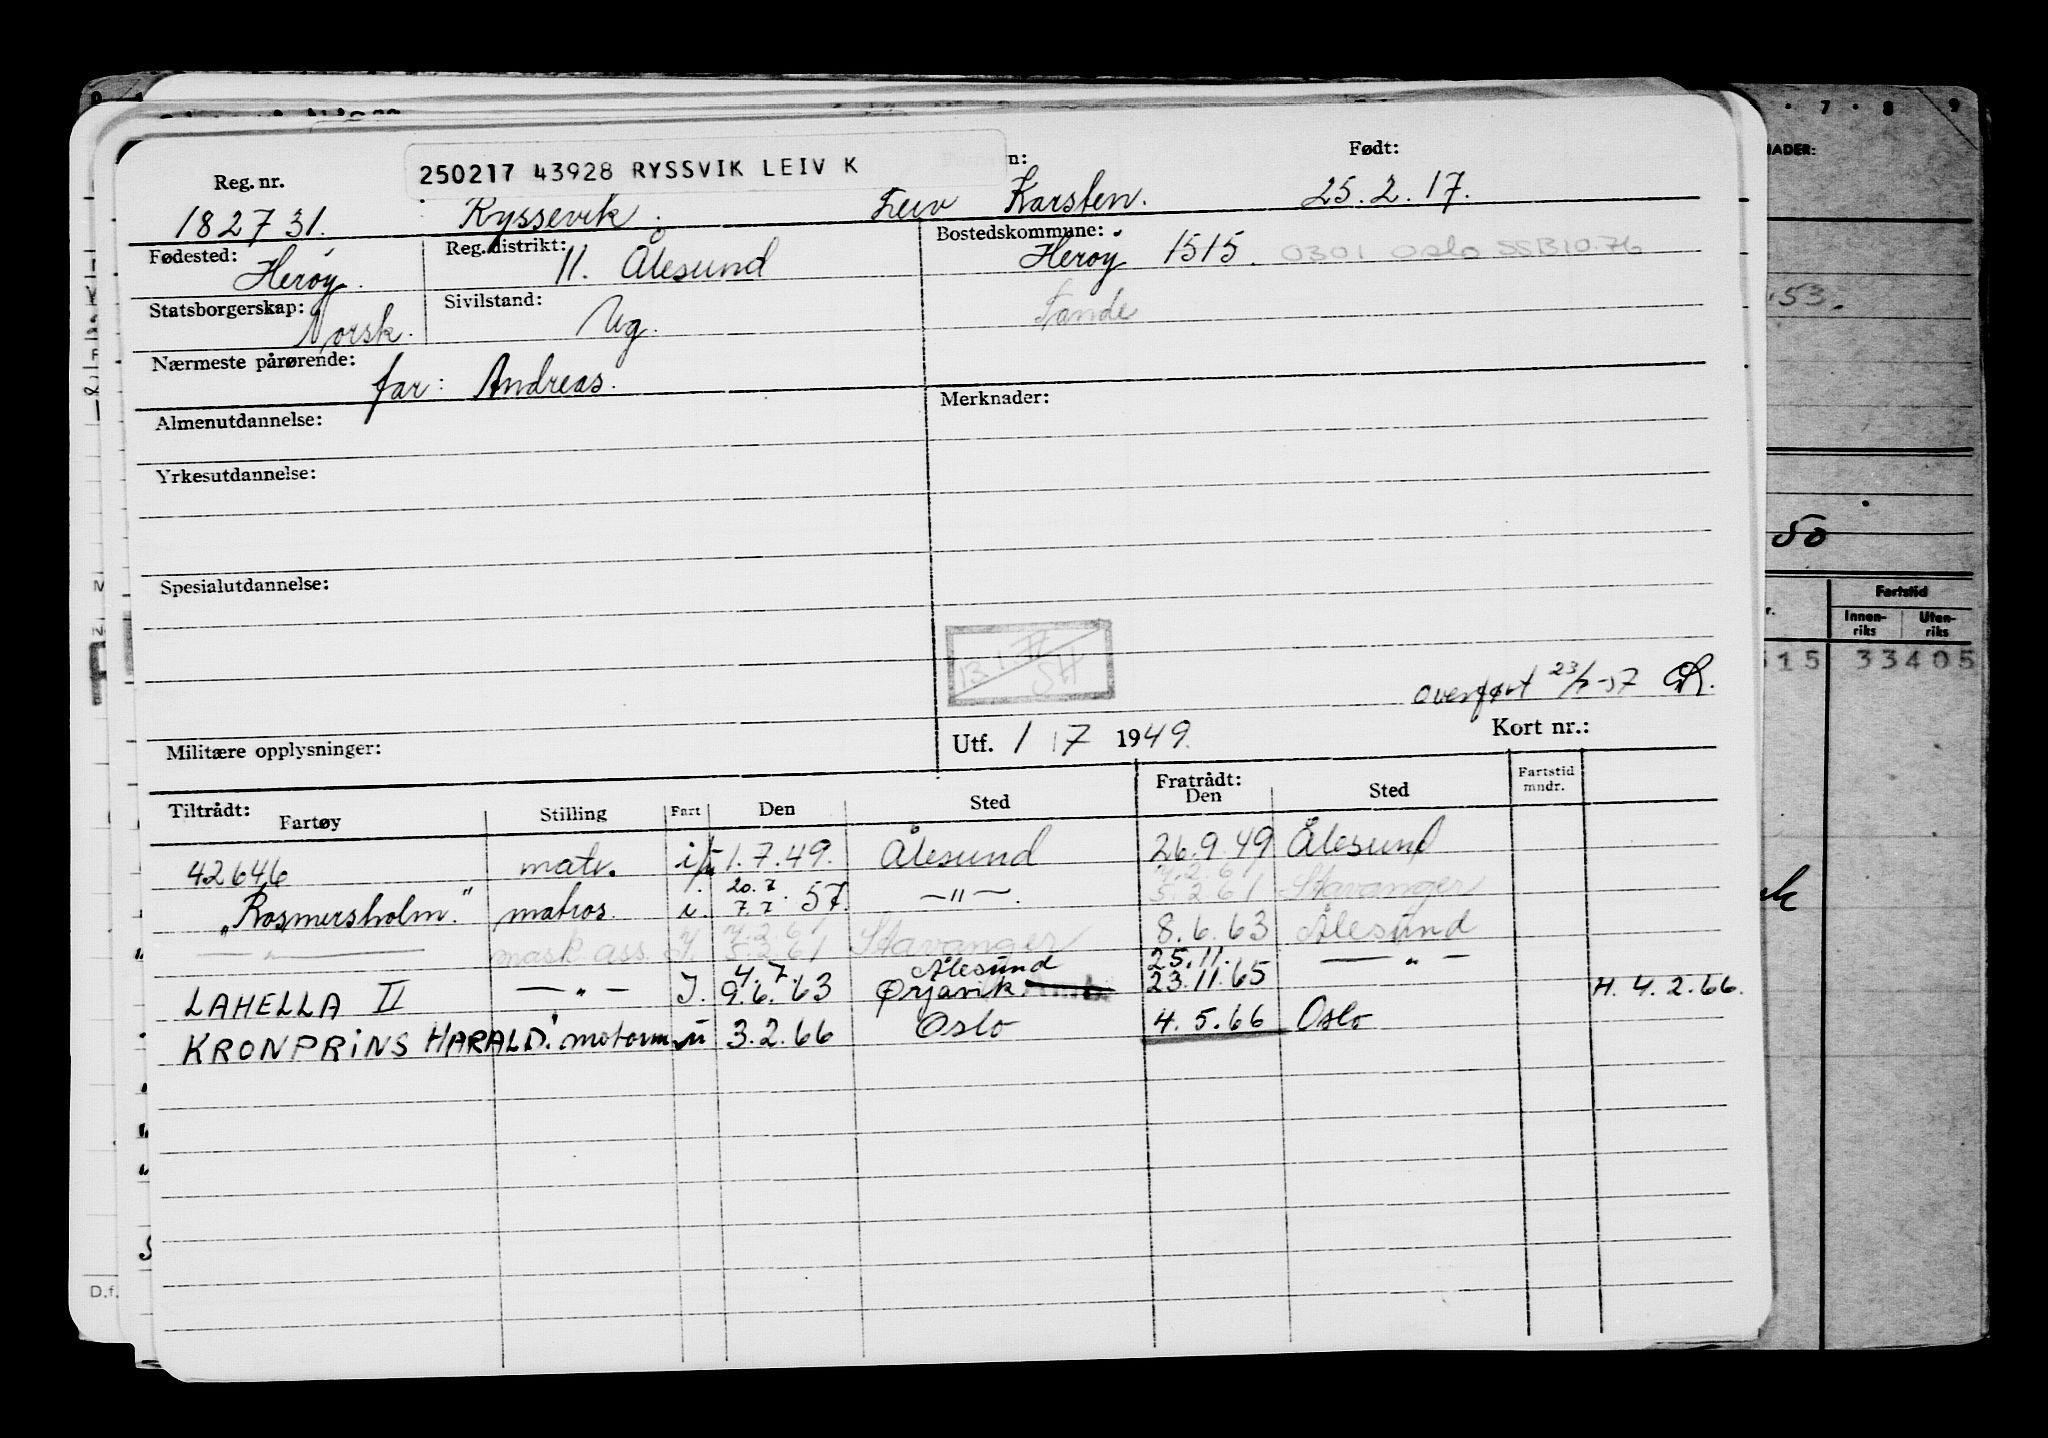 250217 43928 RYSSVIK LEIV K
Reg. nr. n: Født:
182731. Ryssevik. Leiv Karsten. 25.2.17.
Fødested: Reg. distrikt: Bostedskommune:
Herøy. 11. Ålesund Herøy 1515. 0301 Oslo SSB10.76
Statsborgerskap: Sivilstand:
Norsk. Ug. Sande
Nærmeste pårørende:
far: Andreas.
Almenutdannelse: Merknader:
Yrkesutdannelse:
Spesialutdannelse:
overført
Militære opplysninger: Utf. 1 7 1949. Kort nr.:
Tiltrådt: Fratrådt: Fartstid
Fartøy Stilling Fart Den Sted Den Sted mndr.
42646 matr. 1.7.49. Ålesund 26.9.49 Ålesund
20.7 7.2.61
„Rosmersholm." matros. i. 7.7. 57. —"— 5.2.61 Stavanger
7.2.61
— " — mask. ass. 5.2.61 Stavanger 8.6.63 Ålesund
4.7. Ålesund 25.11.
LAHELLA II — " — I. 9.6.63 Ørjavik 23.11.65 — " — H. 4.2.66.
KRONPRINS HARALD. motorm. u 3.2.66 Oslo 4.5.66 Oslo
7 8 9
NADER:
.53.
50
Fartstid
Innen-riks Uten-riks
515 33405
D.f.